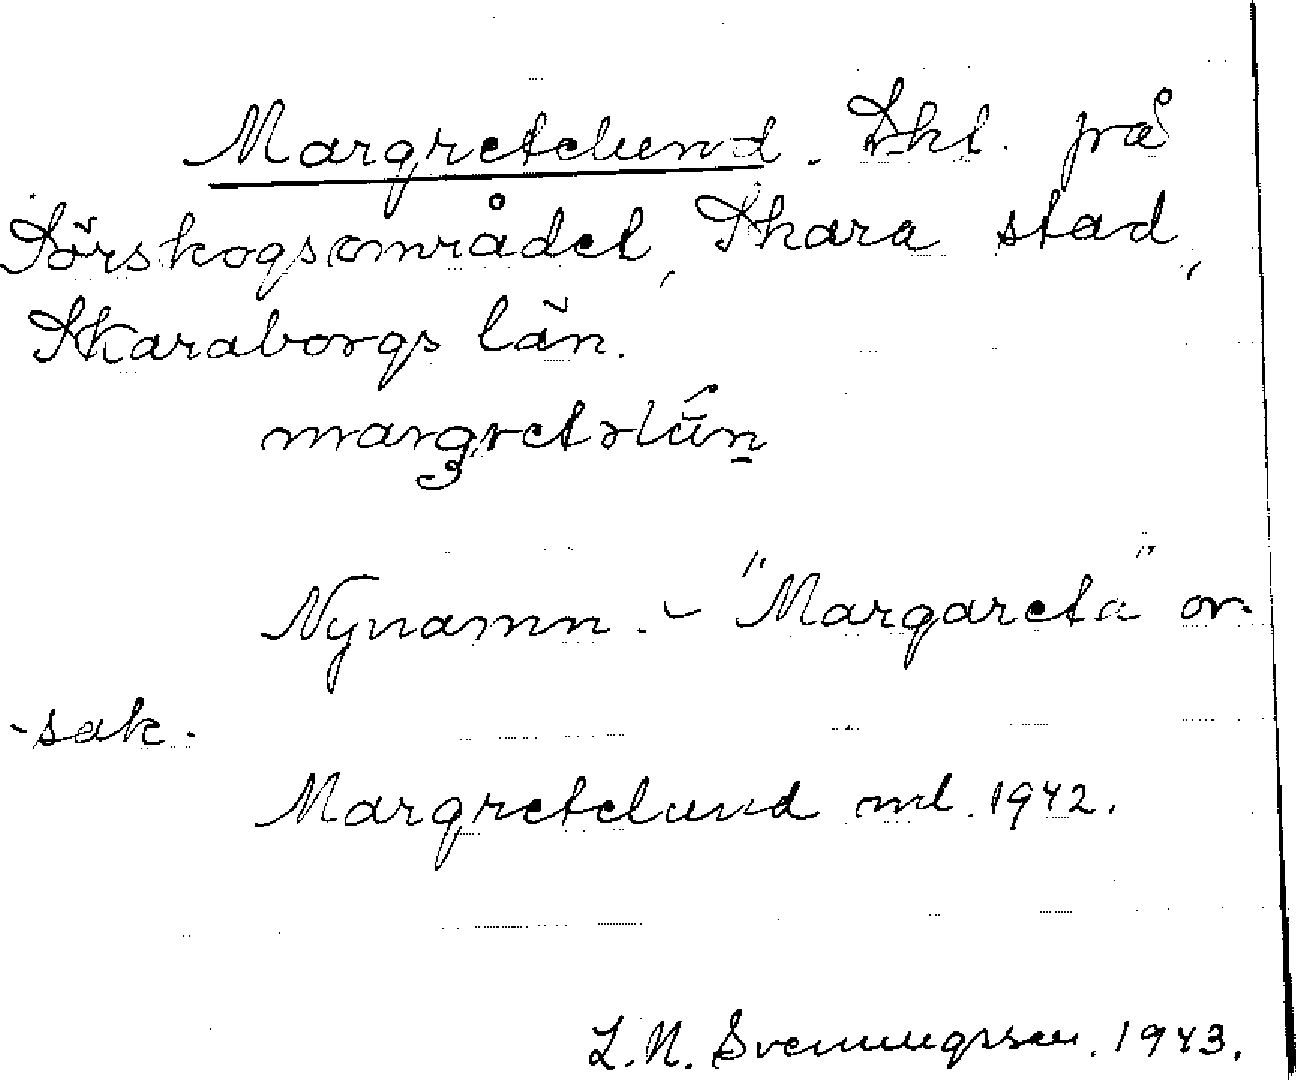 Margretelund. Lht. på
Sörskogsområdet, Skara stad,
Skaraborgs län.
margretəlún
Nynamn. - "Margareta" or-
-sak.
Margretelund ml. 1942.
L.N. Svenungsson. 1943.